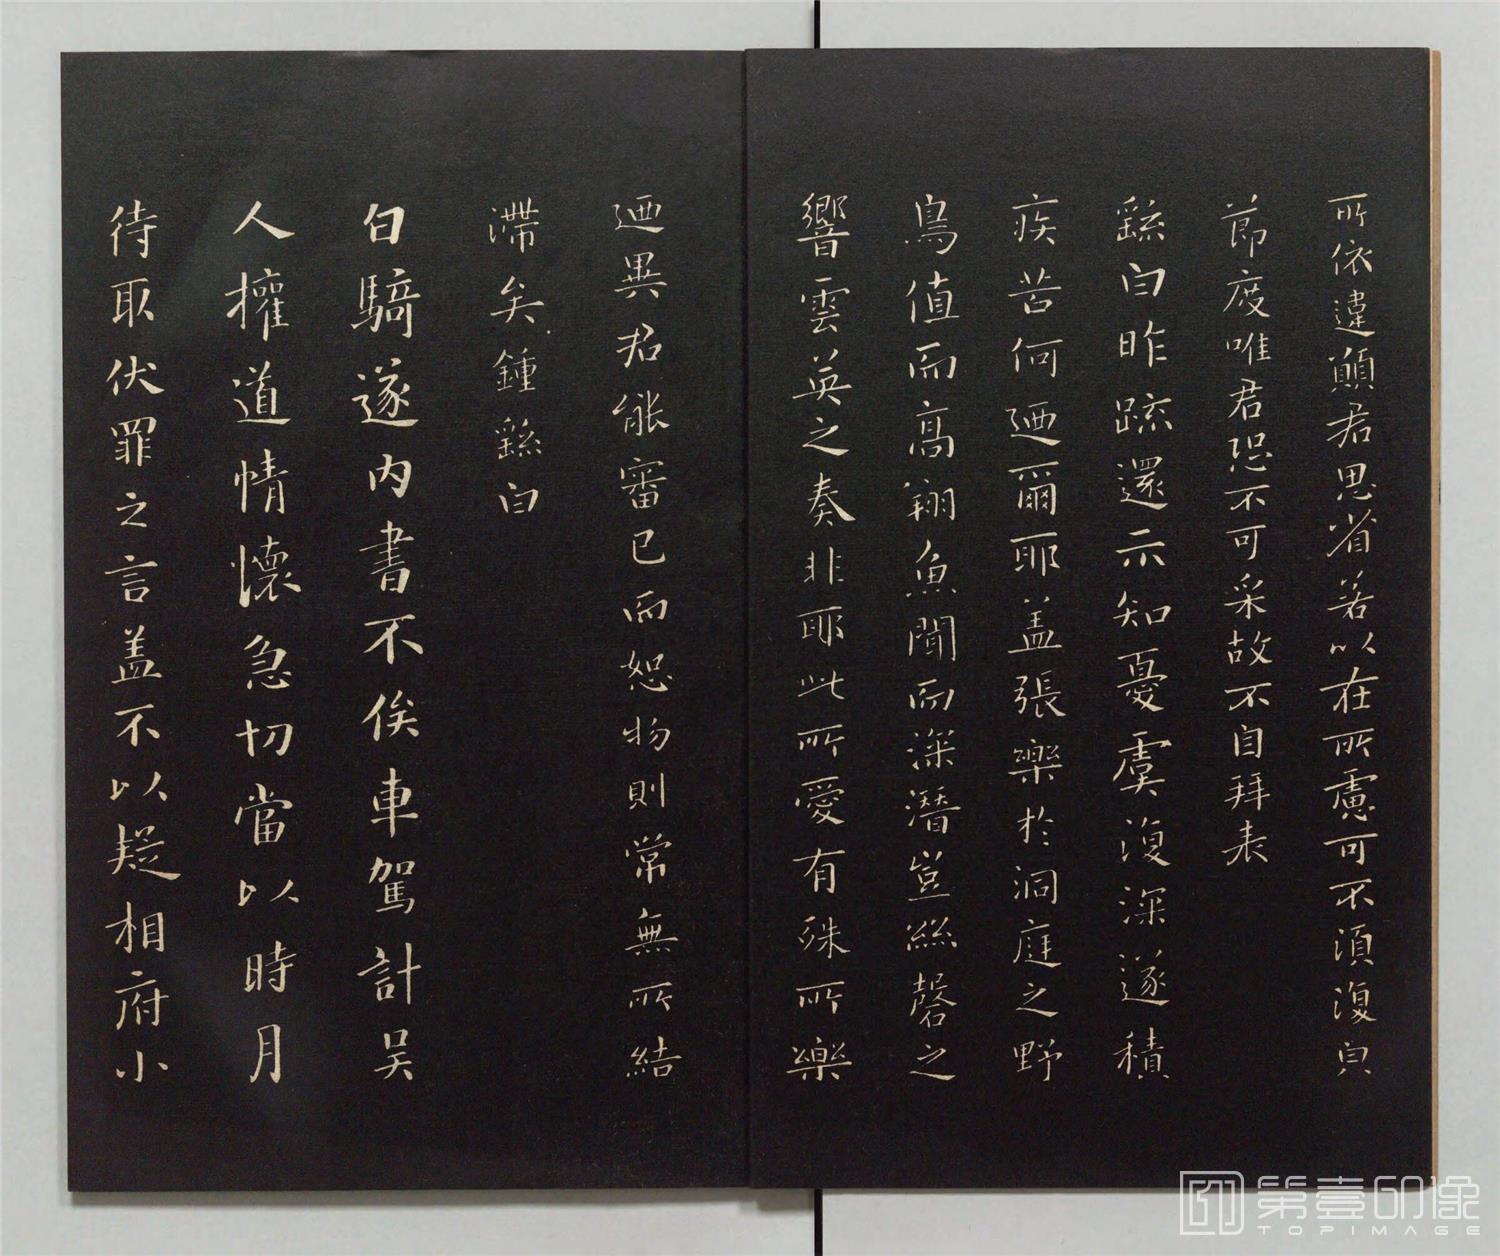 所依違顛君思省若以在所慮可不須復皃
節度唯君恐不可采故不自拜表
繇白昨疏還示知憂虞復深遂積
疾苦何迺爾耶盖張樂於洞庭之野
鳥值而高翔魚聞而深潛豈絲磬之
響雲英之奏非耶此所愛有殊所樂
迺異君能審己而恕物則常無所結
滯矣鍾繇白
白騎遂內書不俟車駕計吴
人權道情懷急切當以時月
待取伏罪之言盖不以疑相府小
第壹印像
TOPIMAGE